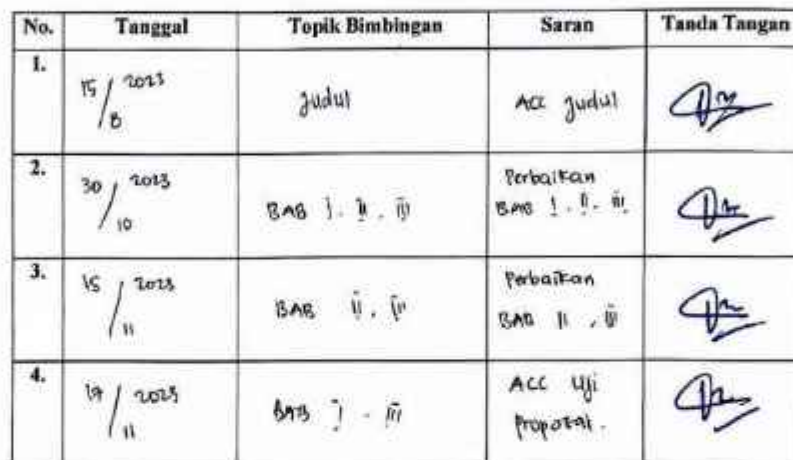 No. Tanggal Topik Bimbingan Saran Tanda Tangan
1. 15/8 2023 Judul ACC Judul
2. 30/10 2023 BAB I. II. III Perbaikan
BAB I. II. III.
3. 15/11 2023 BAB II. III Perbaikan
BAB II. III
4. 17/11 2023 BAB I - III ACC Uji
Proposal.